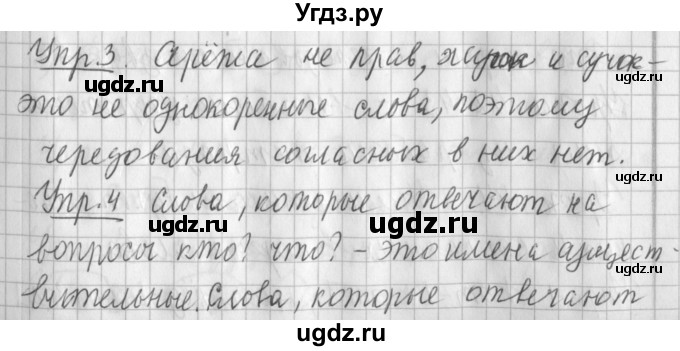 Угдз.ру
Упр.3. Серёжа не прав, жучок и сучок –
это не однокоренные слова, поэтому
чередования согласных в них нет.
Упр.4 Слова, которые отвечают на
вопросы кто? что? – это имена сущест-
вительные. Слова, которые отвечают
ugdz.ru
ugdz.ru
ugdz.ru
ugdz.ru
ugdz.ru
ugdz.ru
ugdz.ru
ugdz.ru
ugdz.ru